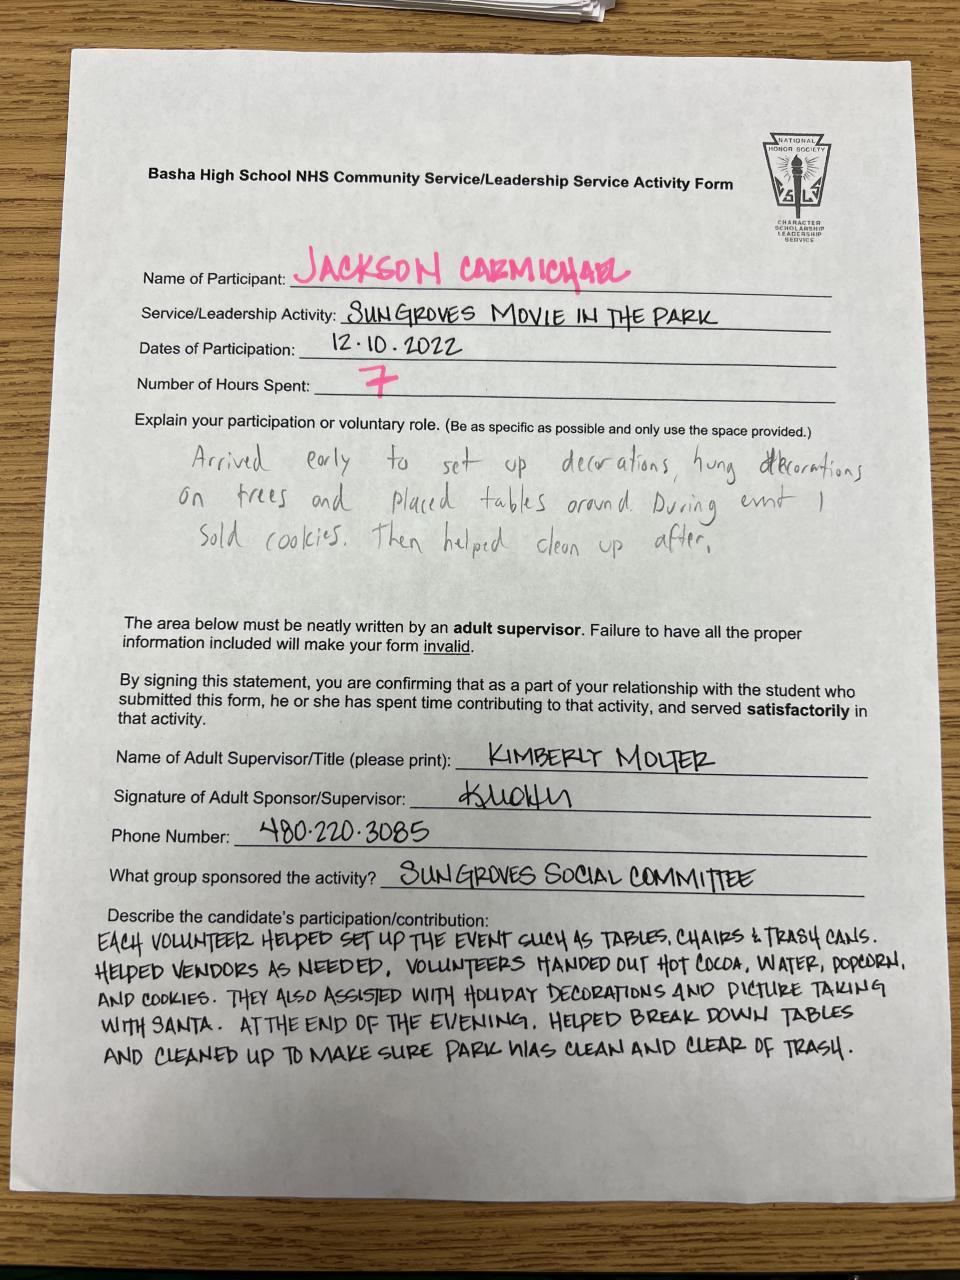 NATIONAL
HONOR SOCIETY
S L
CHARACTER
SCHOLARSHIP
LEADERSHIP
SERVICE
Basha High School NHS Community Service/Leadership Service Activity Form
Name of Participant: JACKSON CARMICHAEL
Service/Leadership Activity: SUN GROVES MOVIE IN THE PARK
Dates of Participation: 12.10.2022
Number of Hours Spent: 7
Explain your participation or voluntary role. (Be as specific as possible and only use the space provided.)
Arrived early to set up decorations, hung decorations
on trees and placed tables around. During I
sold cookies. Then helped clean up after.
The area below must be neatly written by an adult supervisor. Failure to have all the proper
information included will make your form invalid.
By signing this statement, you are confirming that as a part of your relationship with the student who
submitted this form, he or she has spent time contributing to that activity, and served satisfactorily in
that activity.
Name of Adult Supervisor/Title (please print): KIMBERLY MOLTER
Signature of Adult Sponsor/Supervisor:
Phone Number: 480.220.3085
What group sponsored the activity? SUN GROVES SOCIAL COMMITTEE
Describe the candidate's participation/contribution:
EACH VOLUNTEER HELPED SET UP THE EVENT SUCH AS TABLES, CHAIRS & TRASH CANS.
HELPED VENDORS AS NEEDED, VOLUNTEERS HANDED OUT HOT COCOA, WATER, POPCORN,
AND COOKIES. THEY ALSO ASSISTED WITH HOLIDAY DECORATIONS AND PICTURE TAKING
WITH SANTA. AT THE END OF THE EVENING, HELPED BREAK DOWN TABLES
AND CLEANED UP TO MAKE SURE PARK WAS CLEAN AND CLEAR OF TRASH.